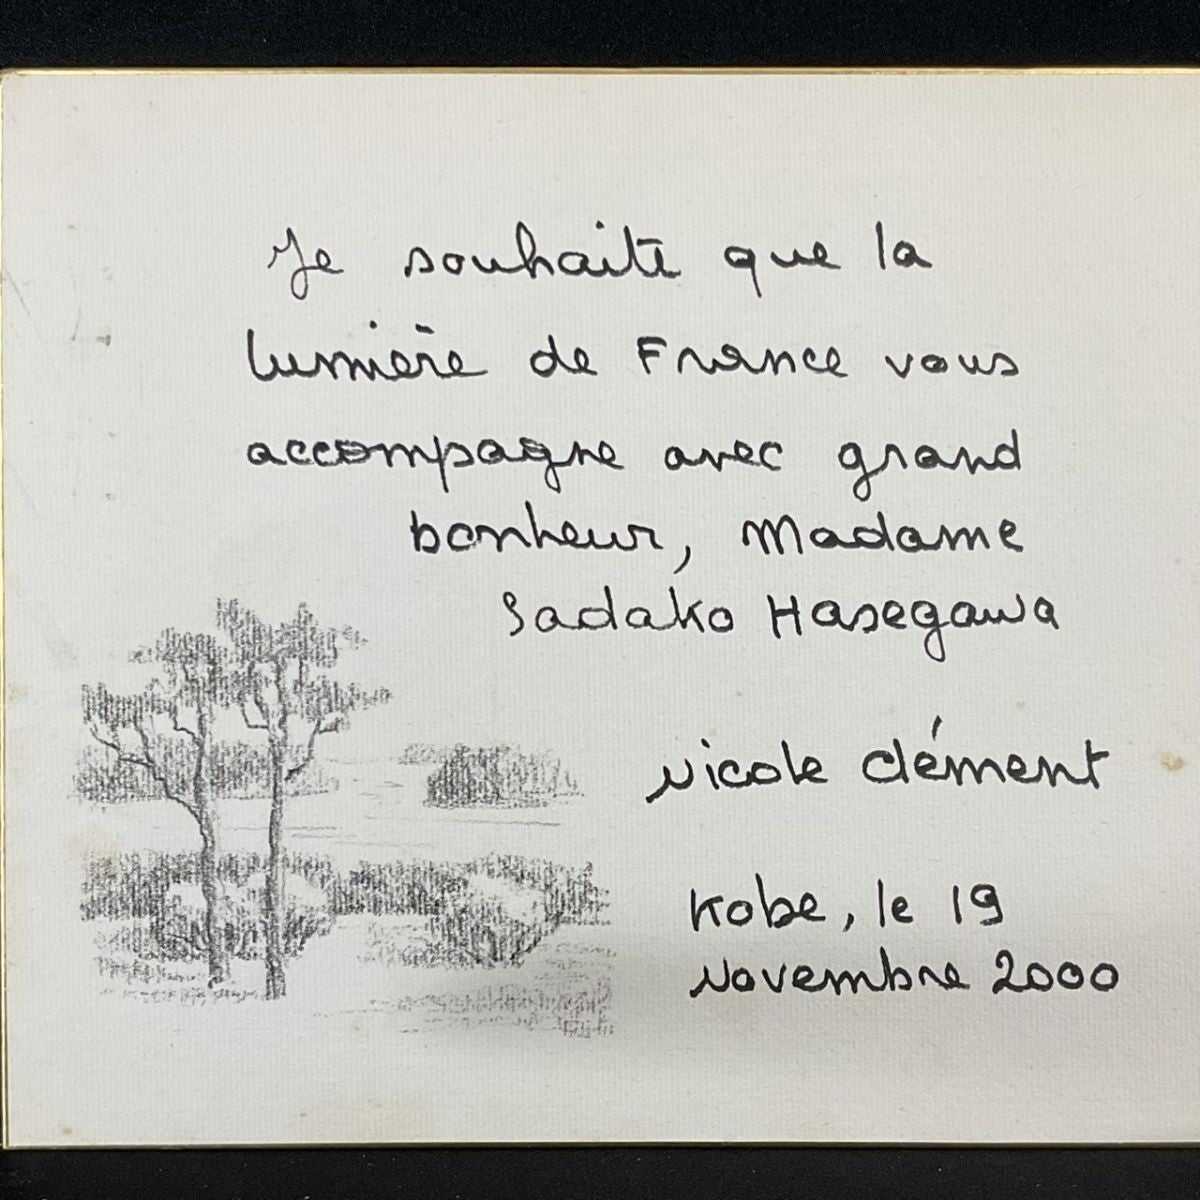 Je souhaite que la
lumière de France vous
accompagne avec grand
bonheur, Madame
Sadako Hasegawa
Nicole Clément
Kobe, le 19
Novembre 2000